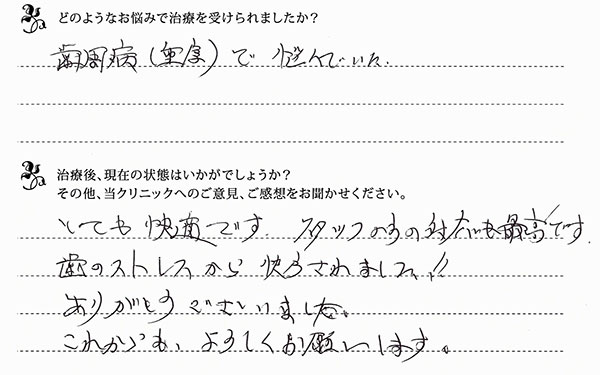 どのようなお悩みで治療を受けられましたか？
歯周病（重度）で悩んでいた.
治療後、現在の状態はいかがでしょうか？
その他、当クリニックへのご意見、ご感想をお聞かせください。
とても快適です. スタッフの方の対応も最高です.
歯のストレスから解放されました!!
ありがとうございました。
これからも、よろしくお願いします。